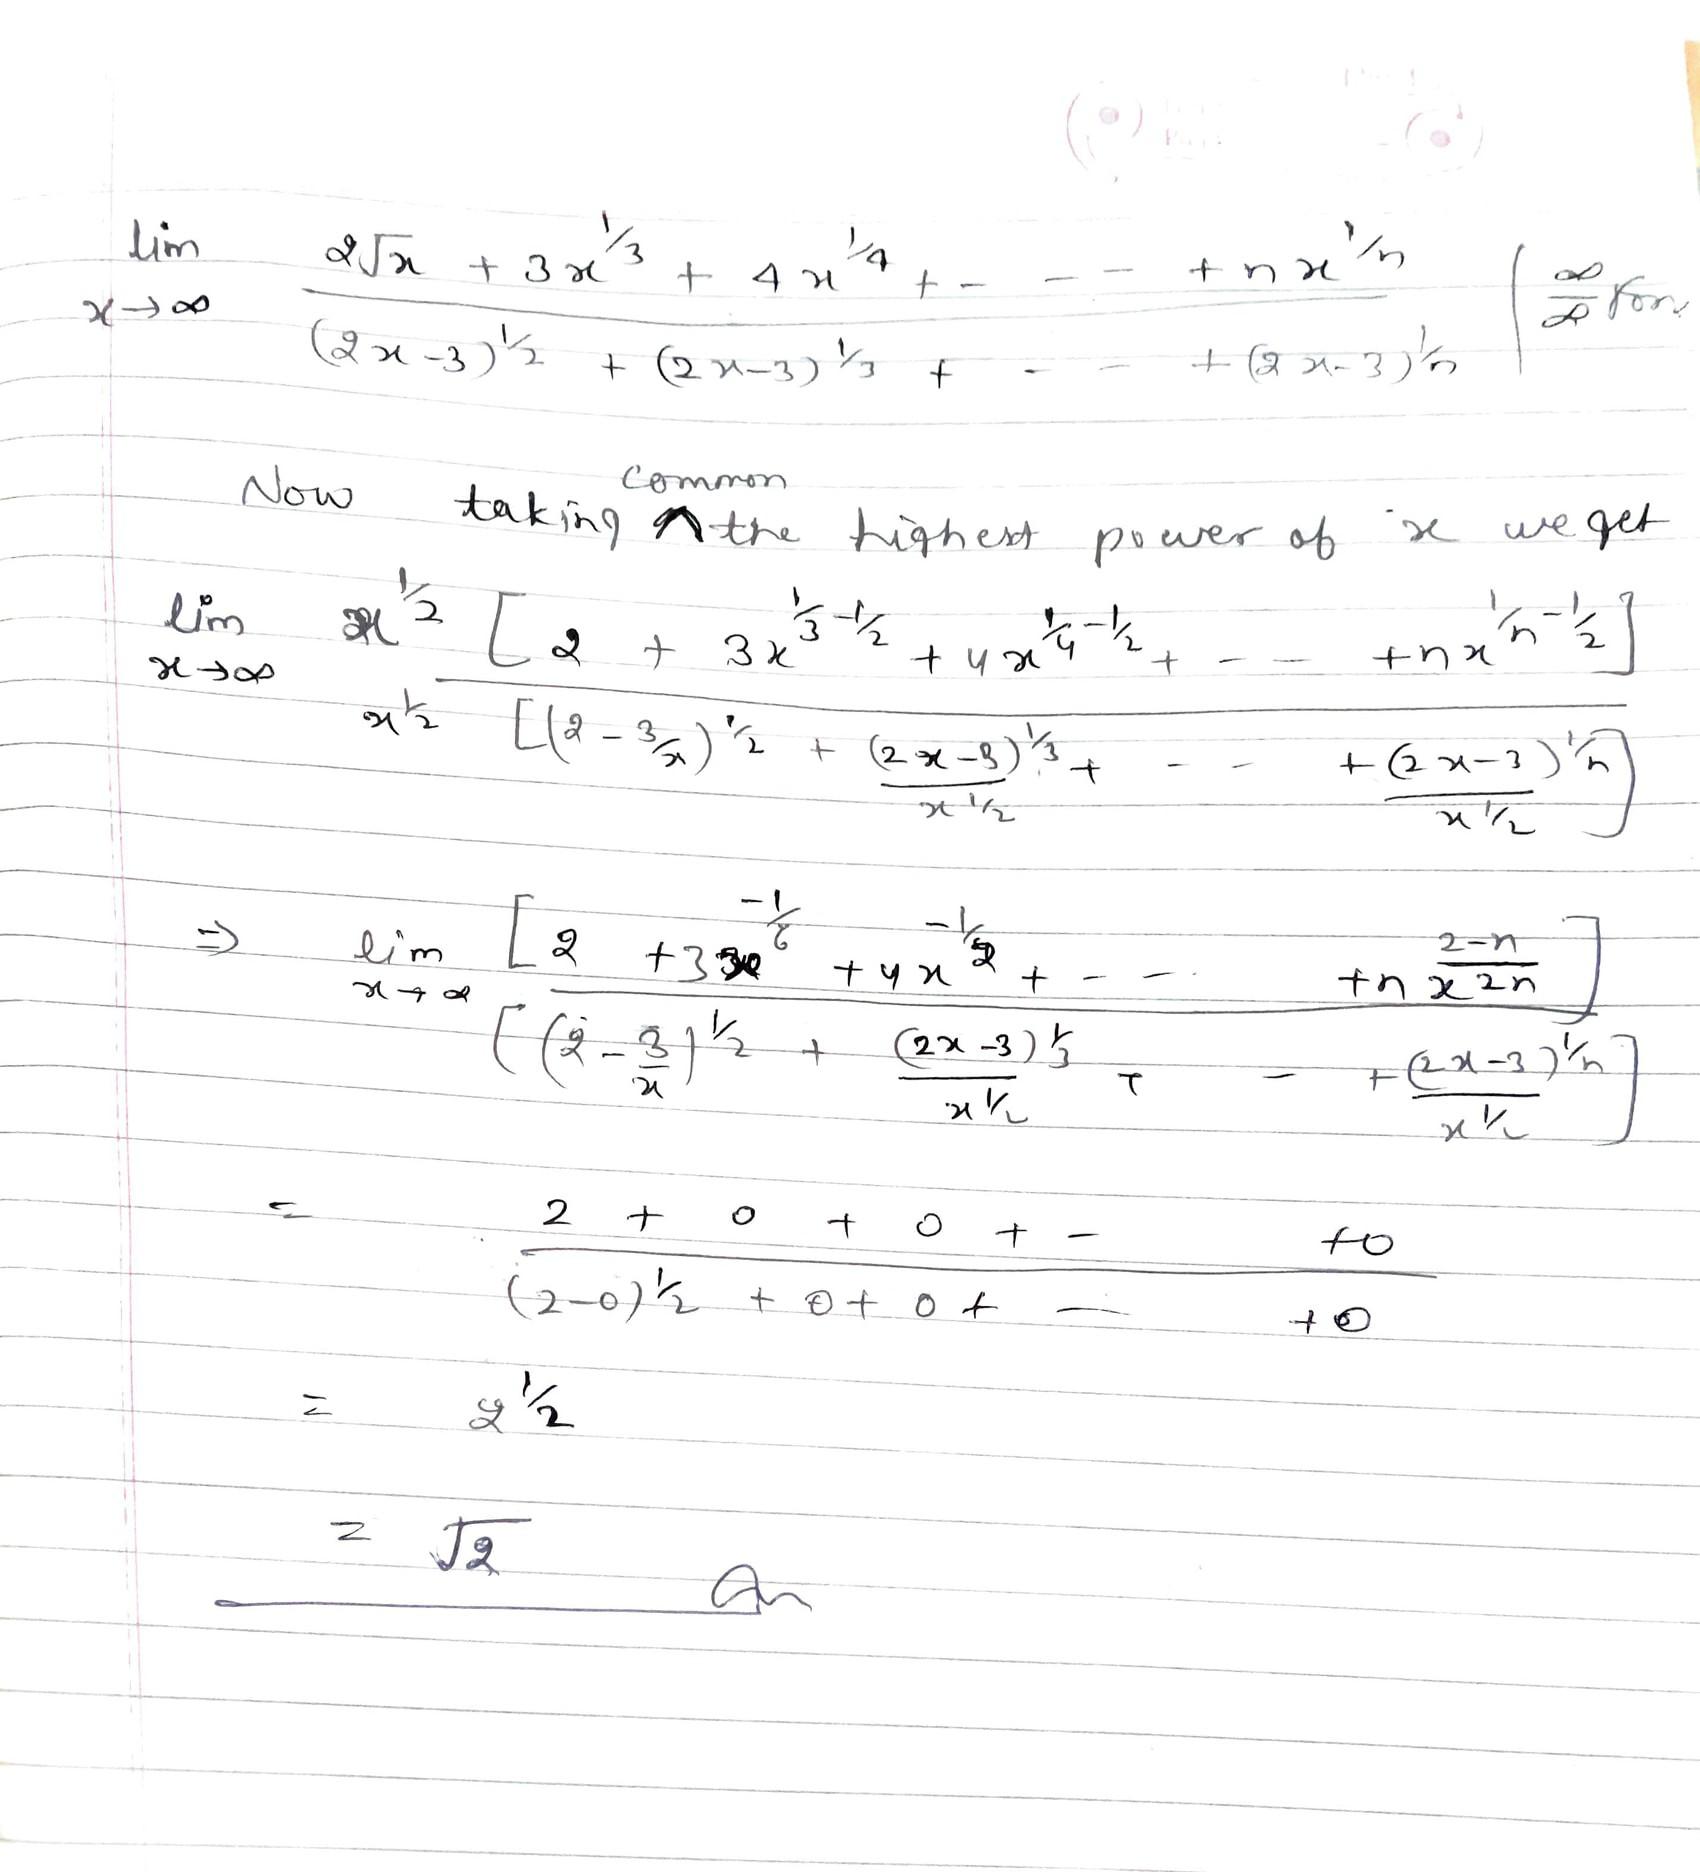 lim x→∞ (2√x + 3x^1/3 + 4x^1/4 + - - - + nx^1/n) / ((2x-3)^1/2 + (2x-3)^1/3 + - - + (2x-3)^1/n) | ∞/∞ for
Now taking common the highest power of x we get
lim x→∞ x^1/2 [2 + 3x^(1/3-1/2) + 4x^(1/4-1/2) + - - + nx^(1/n-1/2)] / x^1/2 [(2-3/x)^1/2 + (2x-3)^1/3/x^1/2 + - - + (2x-3)^1/n/x^1/2]
⇒ lim x→∞ [2 + 3x^-1/6 + 4x^-1/2 + - - + nx^(2-n)/2n] / [(2-3/x)^1/2 + (2x-3)^1/3/x^1/2 + - + (2x-3)^1/n/x^1/2]
= (2 + 0 + 0 + - +0) / ((2-0)^1/2 + 0 + 0 + — +0)
= 2^1/2
= √2 An